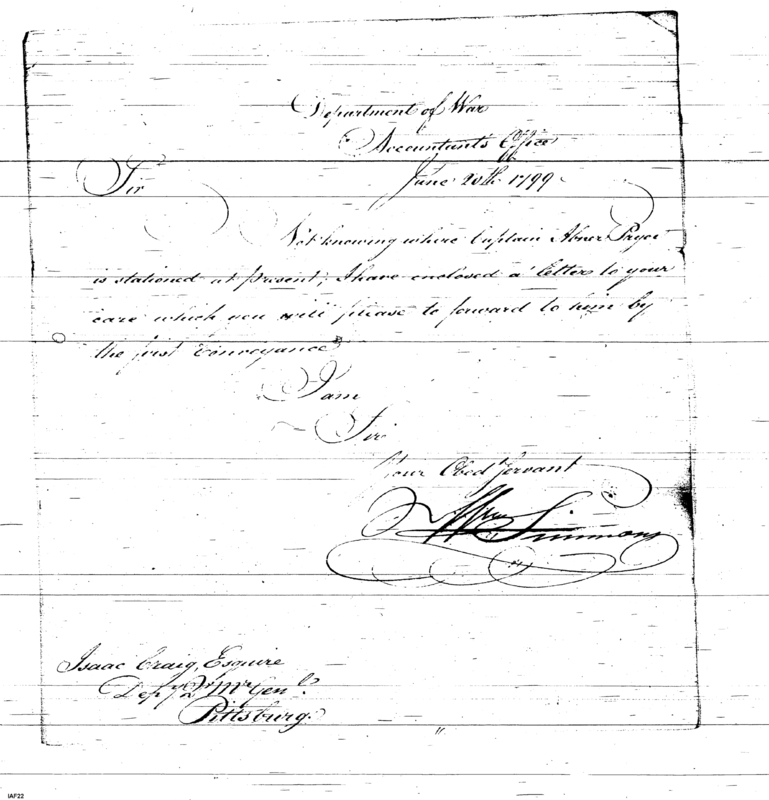 Department of War
Accountant's Office
June 20th 1799
Sir
Not knowing where Captain Abner Pryor
is stationed at present; I have enclosed a letter to your
care which you will please to forward to him by
the first conveyance
I am
Sir
Your Obed Servant
Wm Simmons
Isaac Craig, Esquire
Depy Qr Mr Genl.
Pittsburg.
IAF22